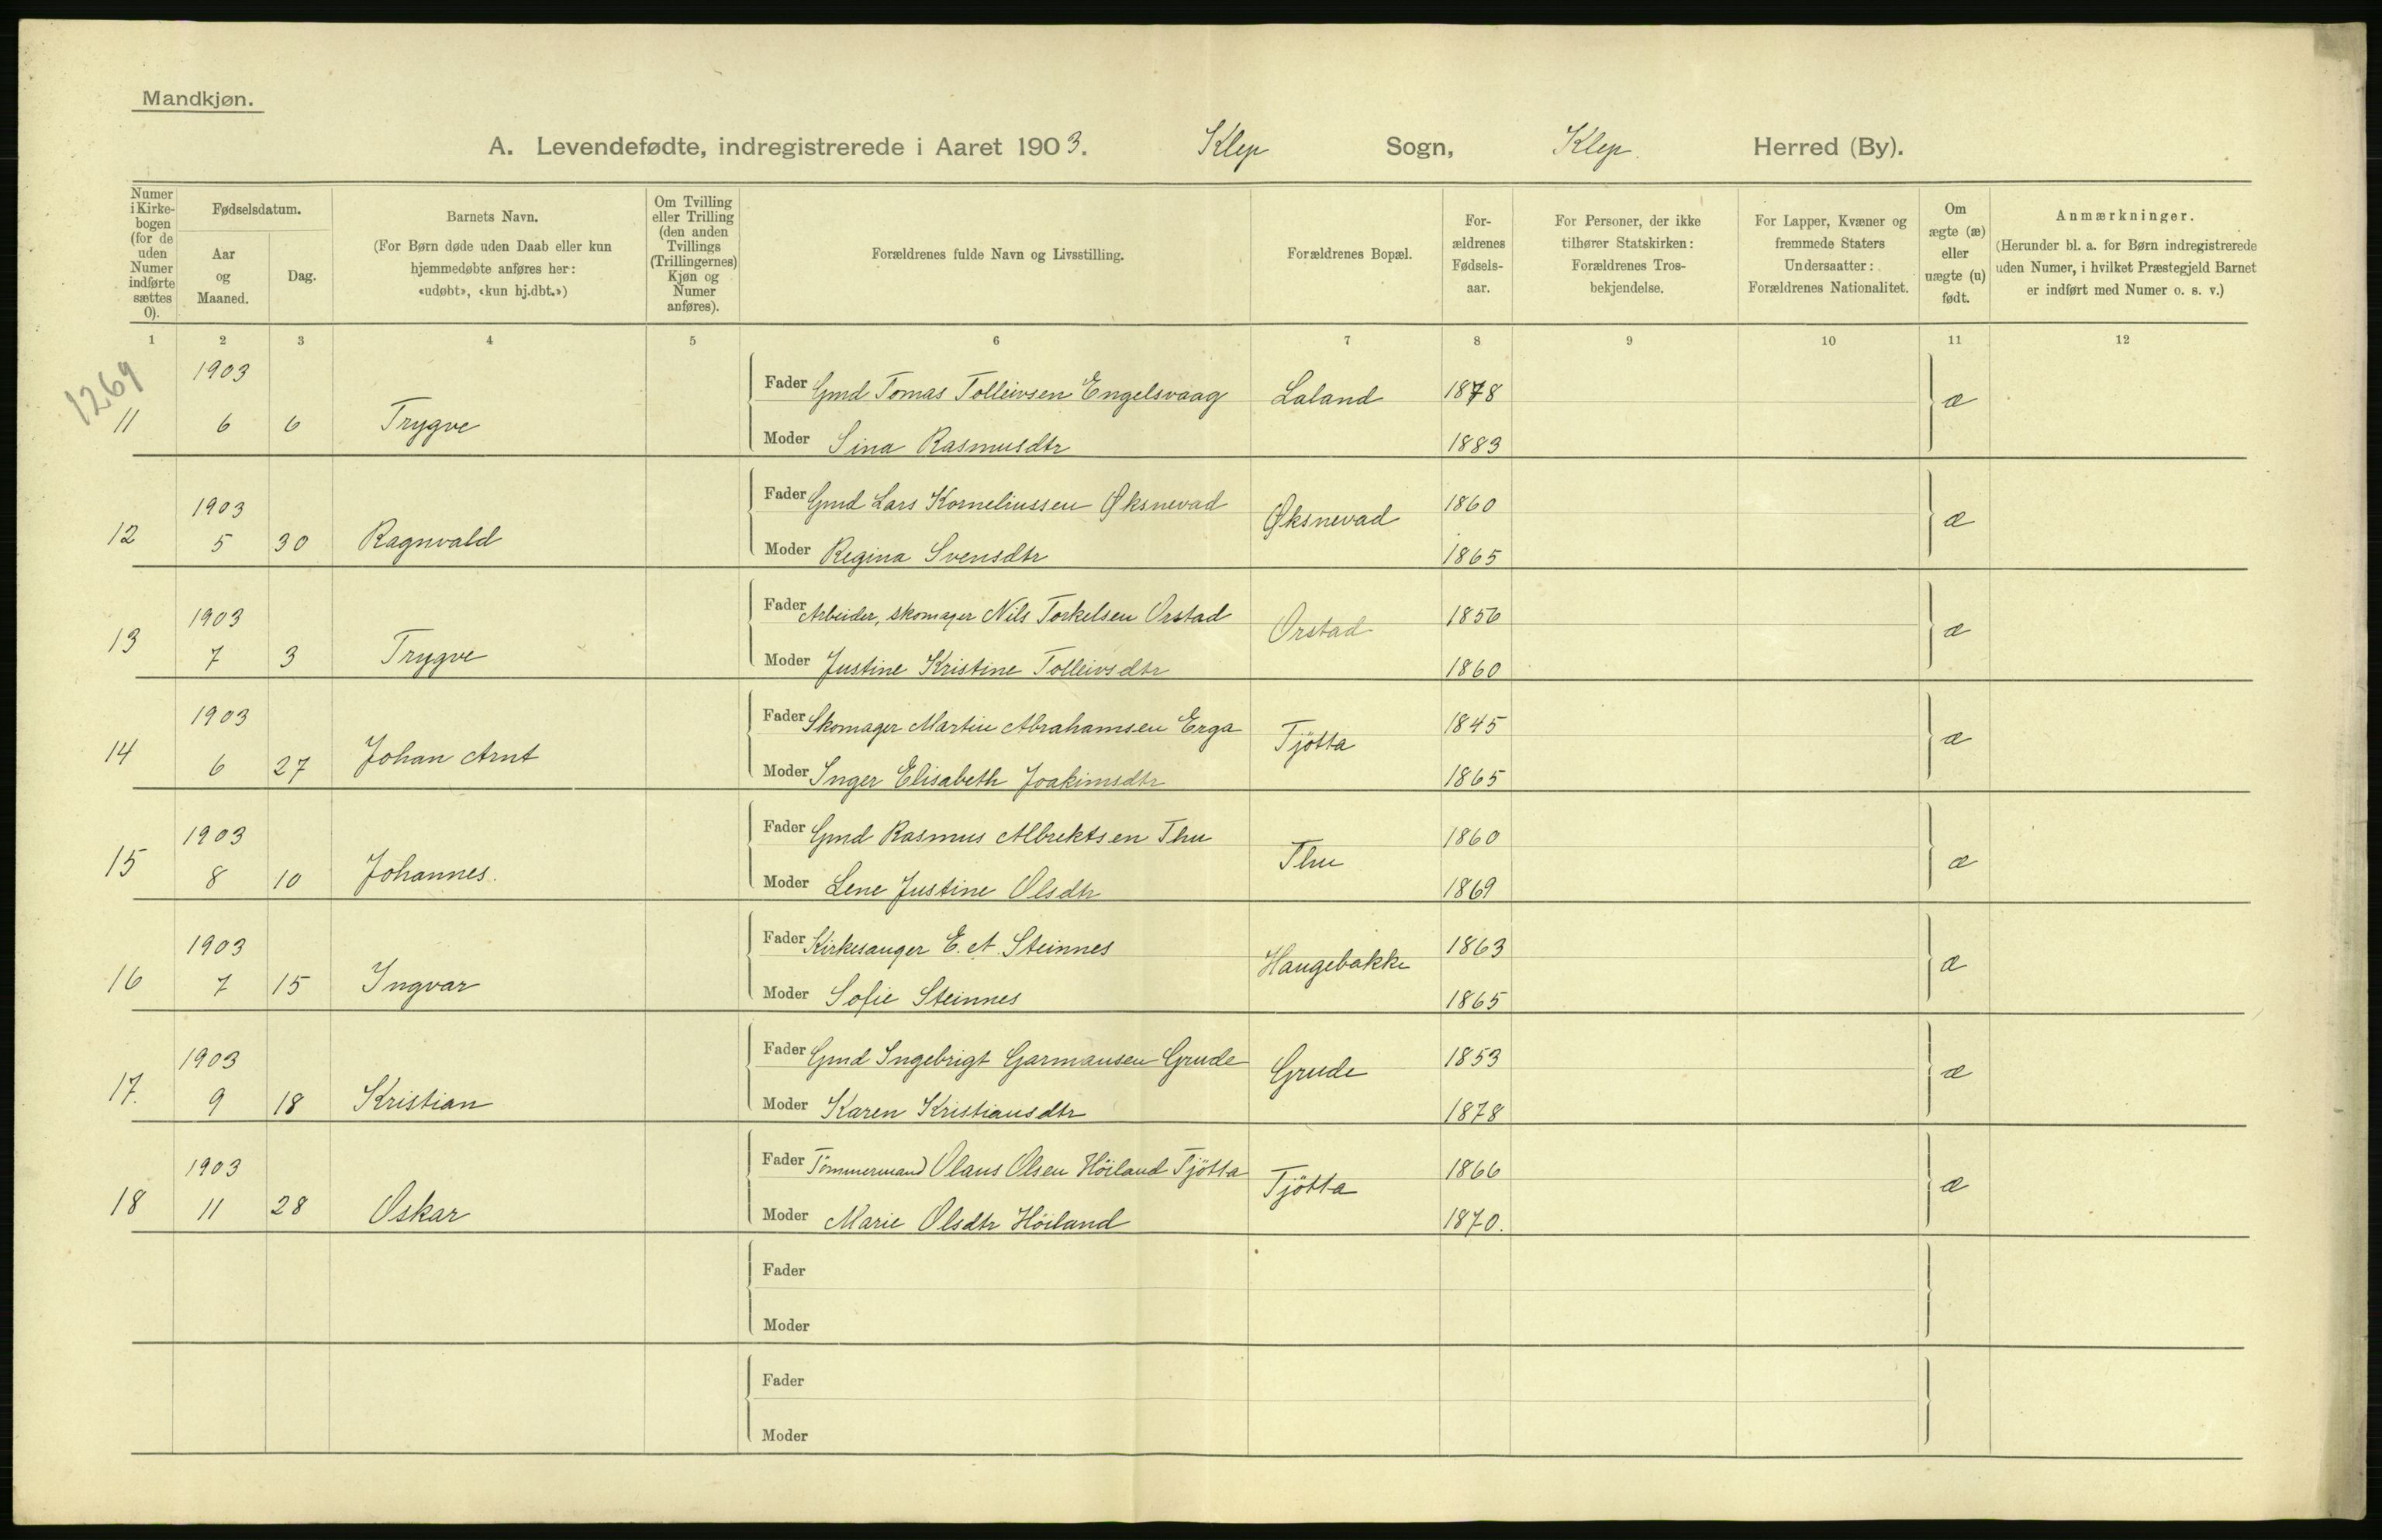 Mandkjøn.
A. Levendefødte, indregistrerede i Aaret 1903. Klep Sogn, Klep. Herred (By).
Numer i Kirke-bogen (for de uden Numer indførte sættes 0).
Fødselsdatum.
Aar og Maaned.
Dag.
Barnets Navn.
(For Børn døde uden Daab eller kun
hjemmedøbte anføres her:
«udøbt», «kun hj.dbt.»)
Om Tvilling
eller Trilling
(den anden
Tvillings
(Trillingernes)
Kjøn og
Numer
anføres).
Forældrenes fulde Navn og Livsstilling.
Forældrenes Bopæl.
For-
ældrenes
Fødsels-
aar.
For Personer, der ikke
tilhører Statskirken:
Forældrenes Tros-
bekjendelse.
For Lapper, Kvæner og
fremmede Staters
Undersaatter:
Forældrenes Nationalitet.
Om
ægte (æ)
eller
uægte (u)
født.
Anmærkninger.
(Herunder bl. a. for Børn indregistrerede
uden Numer, i hvilket Præstegjeld Barnet
er indført med Numer o. s. v.)
1 2 3 4 5 6 7 8 9 10 11 12
1269
1903 Fader Gmd Tomas Tolleivsen Engelsvaag Laland 1878 æ
11 6 6 Trygve Moder Sina Rasmusdtr 1883
1903 Fader Gmd Lars Korneliussen Øksnevad Øksnevad 1860 æ
12 5 30 Ragnvald Moder Regina Svensdtr 1865
1903 Fader Arbeider, skomager Nils Torkelsen Orstad Orstad 1856 æ
13 7 3 Trygve Moder Justine Kristine Tolleivsdtr 1860
1903 Fader Skomager Martin Abrahamsen Erga Tjötta 1845 æ
14 6 27 Johan Arnt Moder Inger Elisabeth Joakimsdtr 1865
1903 Fader Gmd Rasmus Albrektsen Thu Thu 1860 æ
15 8 10 Johannes. Moder Lene Justine Olsdtr 1869
1903 Fader Kirkesanger E. A. Steinnes Haugebakke 1863 æ
16 7 15 Ingvar Moder Sofie Steinnes 1865
1903 Fader Gmd Ingebrigt Garmansen Grude Grude 1853 æ
17. 9 18 Kristian Moder Karen Kristiansdtr 1878
1903 Fader Tömmermand Olaus Olsen Höiland Tjötta Tjötta 1866 æ
18 11 28 Oskar Moder Marie Olsdtr Höiland 1870.
Fader
Moder
Fader
Moder